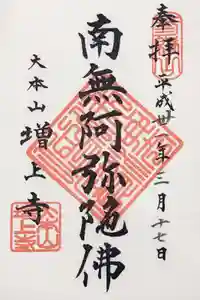 奉拝
平成卅一年三月十七日
南無阿弥陀佛
大本山
増上寺